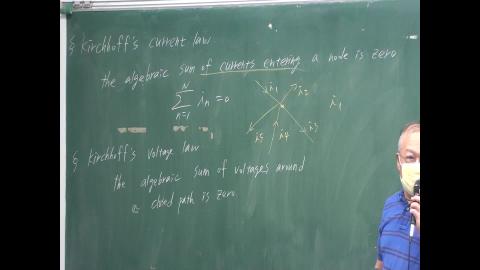 § Kirchhoff's current law
the algebraic sum of currents entering a node is zero
∑_{n=1}^{N} i_n = 0
i1 i2 i3 i4 i5
i1
§ Kirchhoff's voltage law
the algebraic sum of voltages around
a closed path is zero.